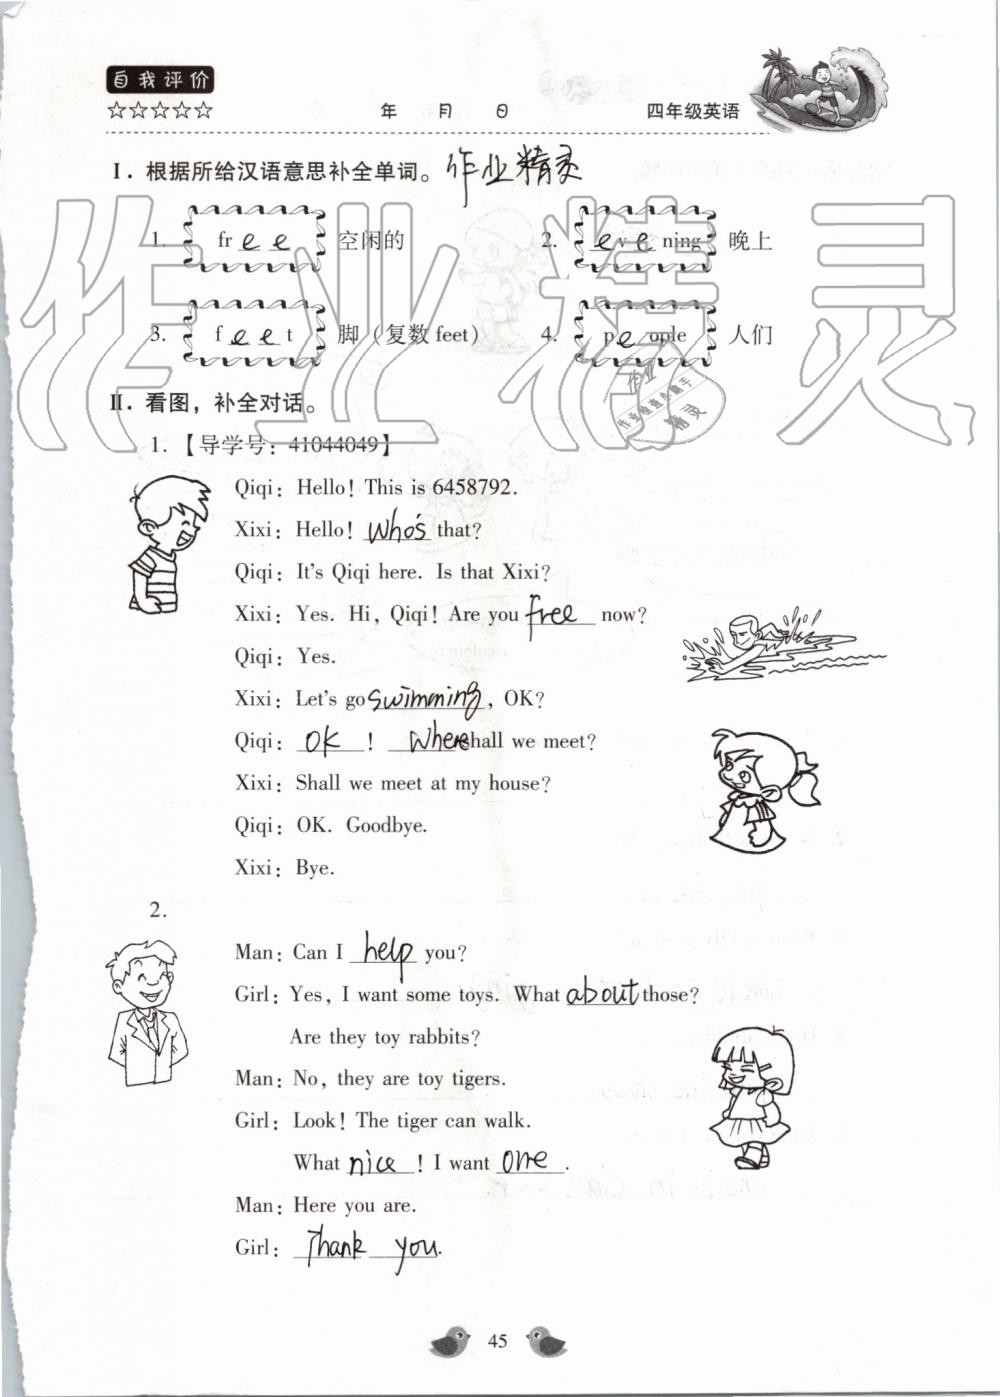 自我评价
☆☆☆☆☆ 年 月 日 四年级英语
Ⅰ. 根据所给汉语意思补全单词。 作业精灵
1. free 空闲的 2. evening 晚上
3. feet 脚（复数feet） 4. people 人们
Ⅱ. 看图，补全对话。
1.【导学号：41044049】
Qiqi: Hello! This is 6458792.
Xixi: Hello! Who's that?
Qiqi: It's Qiqi here. Is that Xixi?
Xixi: Yes. Hi, Qiqi! Are you free now?
Qiqi: Yes.
Xixi: Let's go swimming, OK?
Qiqi: OK! Where shall we meet?
Xixi: Shall we meet at my house?
Qiqi: OK. Goodbye.
Xixi: Bye.
2.
Man: Can I help you?
Girl: Yes, I want some toys. What about those?
Are they toy rabbits?
Man: No, they are toy tigers.
Girl: Look! The tiger can walk.
What nice! I want one.
Man: Here you are.
Girl: Thank you.
45
作业精灵